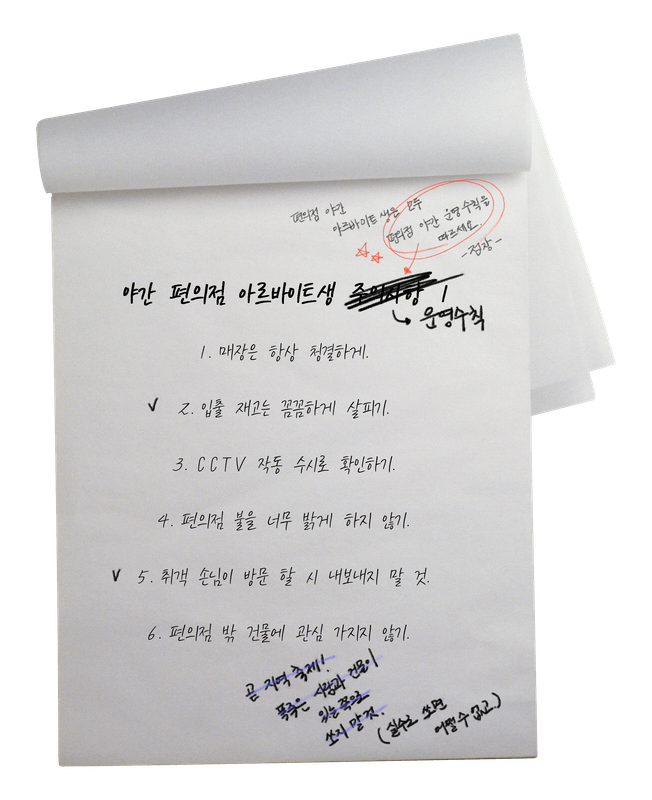 편의점 야간
아르바이트생은 모두
편의점 야간 운영수칙을
따르세요.
-점장-
야간 편의점 아르바이트생 주의사항 !
운영수칙
1. 매장은 항상 청결하게.
2. 입출 재고는 꼼꼼하게 살피기.
3. CCTV 작동 수시로 확인하기.
4. 편의점 불을 너무 밝게 하지 않기.
5. 취객 손님이 방문 할 시 내보내지 말 것.
6. 편의점 밖 건물에 관심 가지지 않기.
곧 지역 축제!
폭죽은 사람과 건물이
있는 쪽으로
쏘지 말 것.
(실수로 쏘면
어쩔 수 없고)